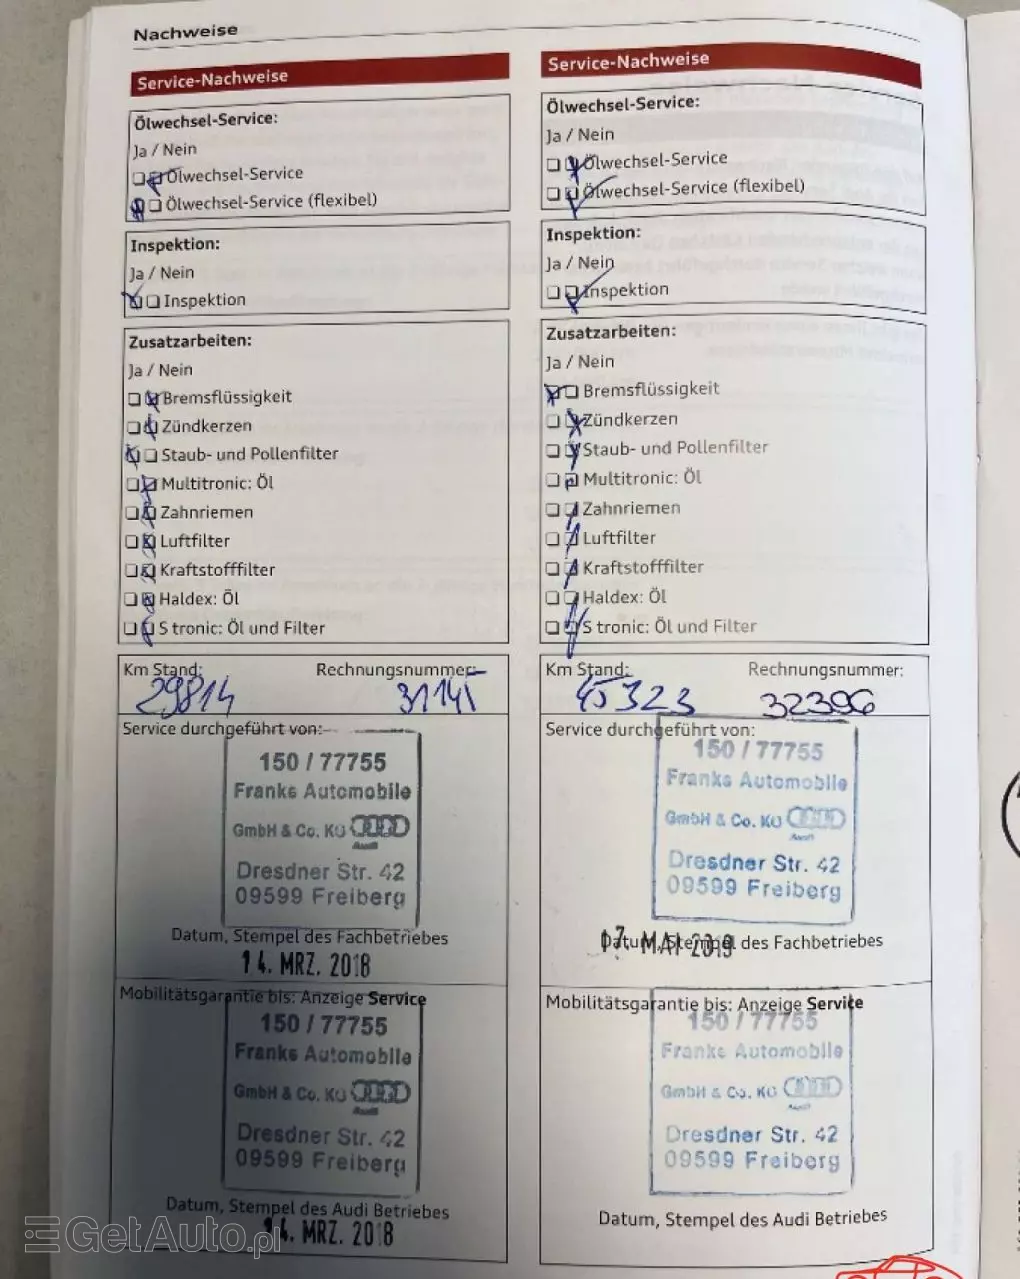 Nachweise
Service-Nachweise
Ölwechsel-Service:
Ja / Nein
Ölwechsel-Service
Ölwechsel-Service (flexibel)
Inspektion:
Ja / Nein
Inspektion
Zusatzarbeiten:
Ja / Nein
Bremsflüssigkeit
Zündkerzen
Staub- und Pollenfilter
Multitronic: Öl
Zahnriemen
Luftfilter
Kraftstofffilter
Haldex: Öl
S tronic: Öl und Filter
Km Stand: Rechnungsnummer:
29814 31145
Service durchgeführt von:
150 / 77755
Franks Automobile
GmbH & Co. KG
Audi
Dresdner Str. 42
09599 Freiberg
Datum, Stempel des Fachbetriebes
14. MRZ. 2018
Mobilitätsgarantie bis: Anzeige Service
150 / 77755
Franks Automobile
GmbH & Co. KG
Audi
Dresdner Str. 42
09599 Freiberg
Datum, Stempel des Audi Betriebes
14. MRZ. 2018
Service-Nachweise
Ölwechsel-Service:
Ja / Nein
Ölwechsel-Service
Ölwechsel-Service (flexibel)
Inspektion:
Ja / Nein
Inspektion
Zusatzarbeiten:
Ja / Nein
Bremsflüssigkeit
Zündkerzen
Staub- und Pollenfilter
Multitronic: Öl
Zahnriemen
Luftfilter
Kraftstofffilter
Haldex: Öl
S tronic: Öl und Filter
Km Stand: Rechnungsnummer:
45323 32396
Service durchgeführt von:
150 / 77755
Franks Automobile
GmbH & Co. KG
Audi
Dresdner Str. 42
09599 Freiberg
Datum, Stempel des Fachbetriebes
17. MAI 2019
Mobilitätsgarantie bis: Anzeige Service
150 / 77755
Franks Automobile
GmbH & Co. KG
Audi
Dresdner Str. 42
09599 Freiberg
Datum, Stempel des Audi Betriebes
GetAuto.pl